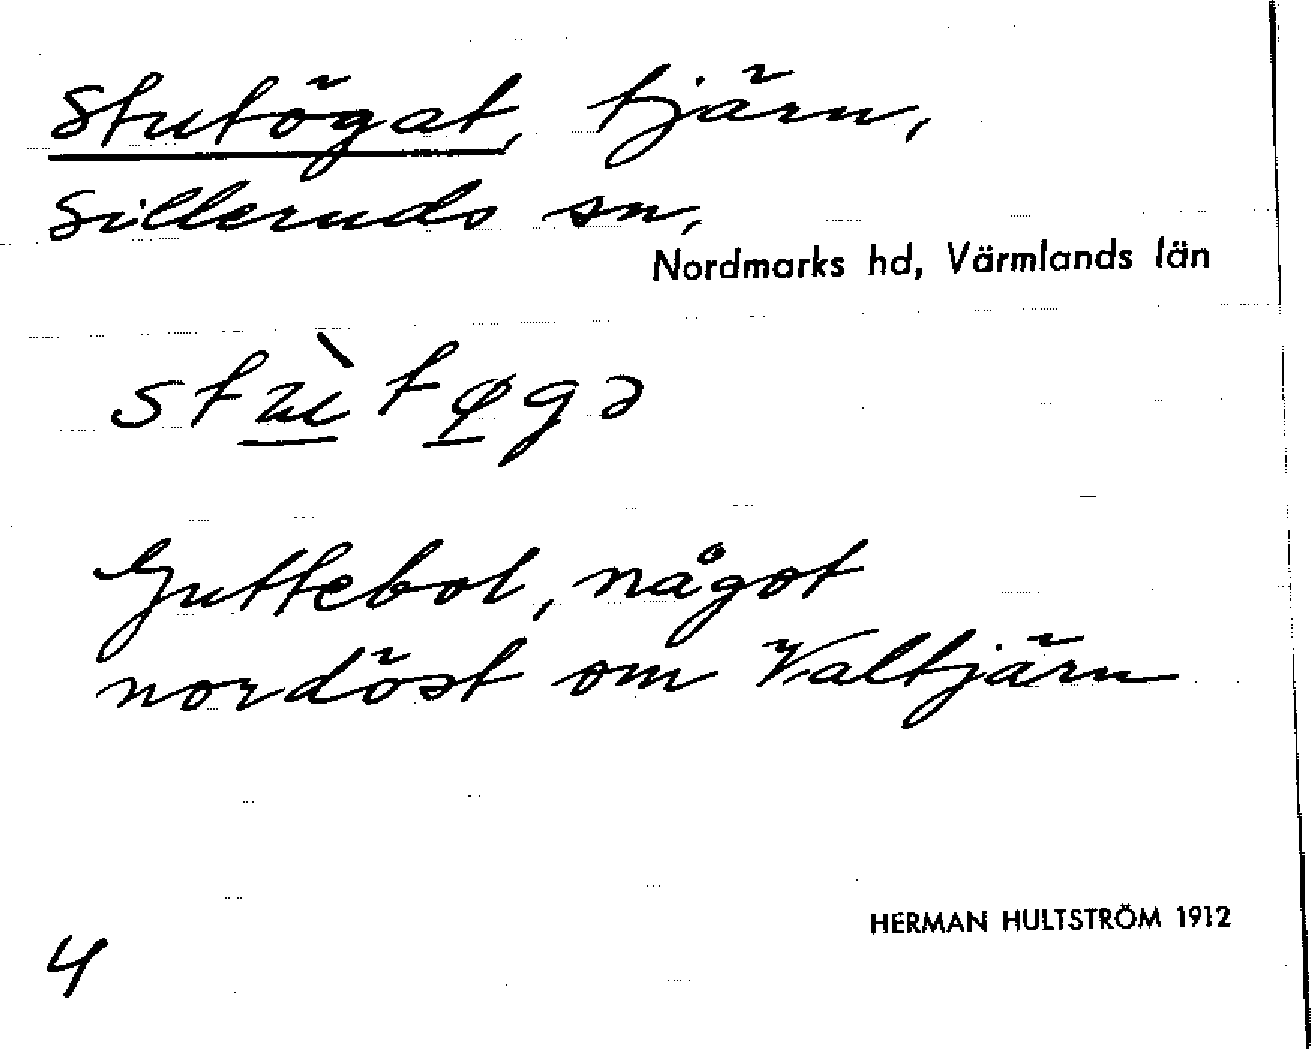 Stutögat, tjärn,
Silleruds sn,
Nordmarks hd, Värmlands län
stùtøgə
Guttebol, något
nordöst om Valtjärn
HERMAN HULTSTRÖM 1912
4